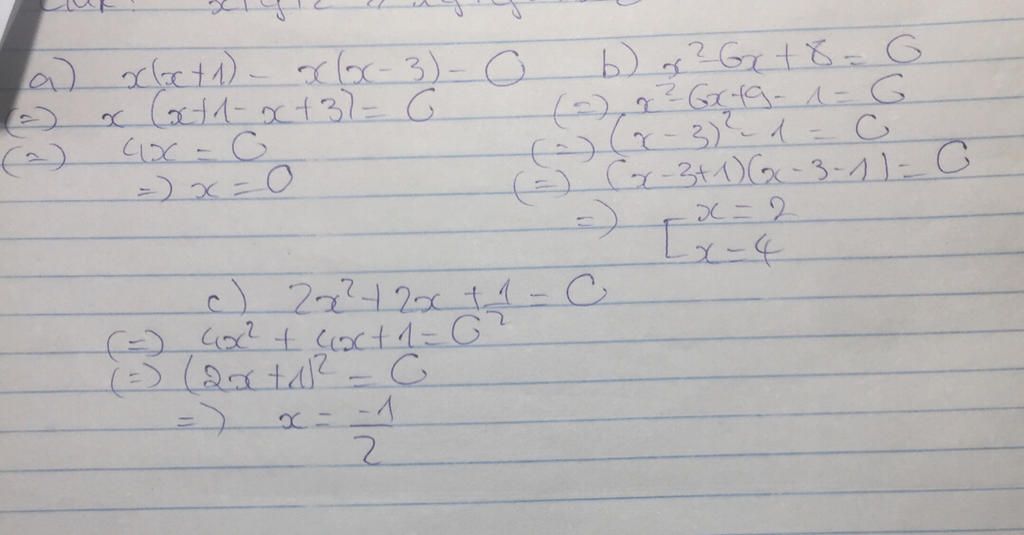 a) x(x+1) - x(x-3) = 0
(=) x (x+1-x+3) = 0
(=) 4x = 0
=) x = 0
b) x² - 6x + 8 = 0
(=) x² - 6x + 9 - 1 = 0
(=) (x-3)² - 1 = 0
(=) (x-3+1)(x-3-1) = 0
=) [ x = 2
x = 4
c) 2x² + 2x + 1/2 = 0
(=) 4x² + 4x + 1 = 0
(=) (2x+1)² = 0
=) x = -1/2